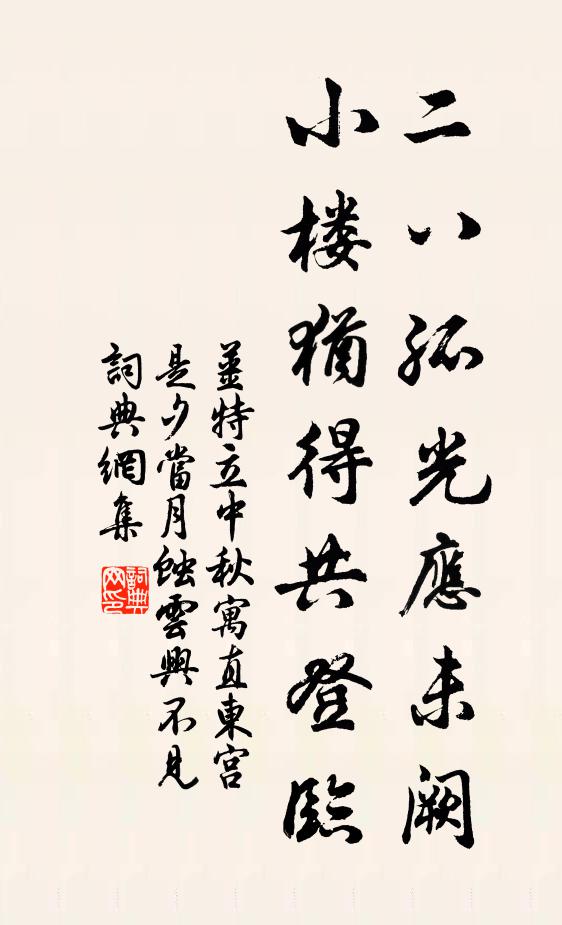 二八孤光應未阙
小楼猶得共登臨
姜特立中秋寓直東宮
是夕當月蝕雲興不見
詞典網集
詞典网印